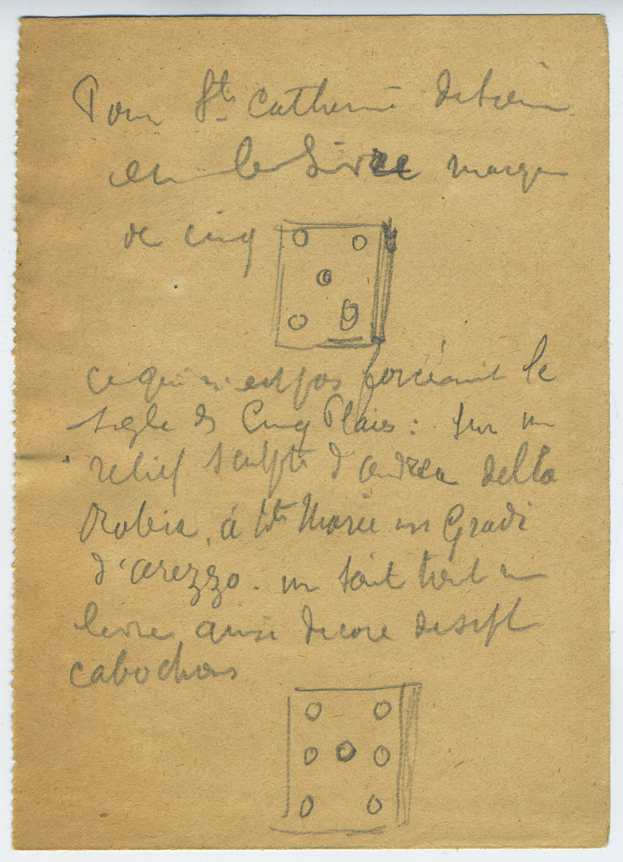 Pour Ste Catherine de Sienne
on a le Livre marqué
de cinq
ce qui n'est pas forcément le
sigle des Cinq Plaies : sur un
relief sculpté d'Andrea della
Robia, à Ste Marie in Gradi
d'Arezzo - un saint tient un
livre ainsi décoré de sept
cabochons